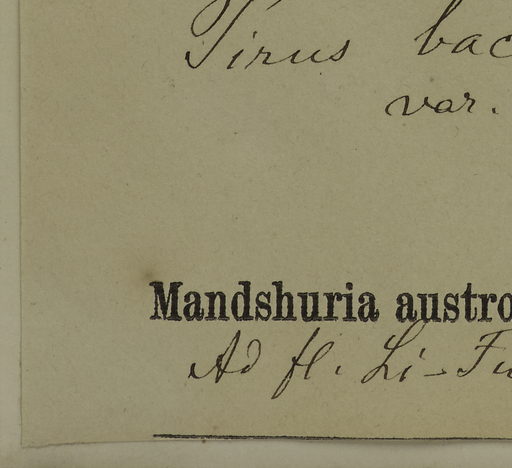 Pirus bac
var.
Mandshuria austro
Ad fl. Li-Fu